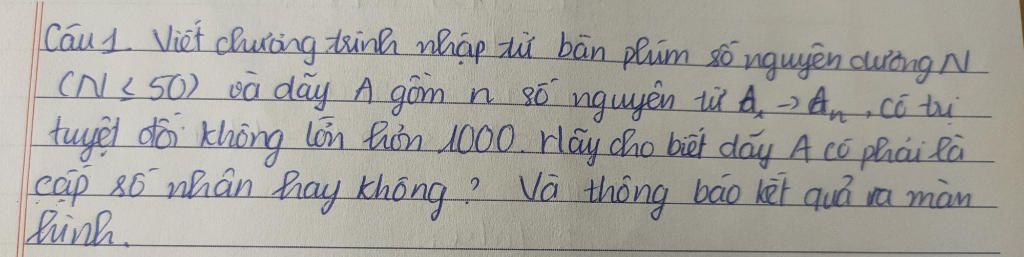 Câu 1. Viết chương trình nhập từ bàn phím số nguyên dương N
(N ≤ 50) và dãy A gồm n số nguyên từ A₁ → Aₙ, có trị
tuyệt đối không lớn hơn 1000. Hãy cho biết dãy A có phải là
cấp số nhân hay không? Và thông báo kết quả ra màn
hình.